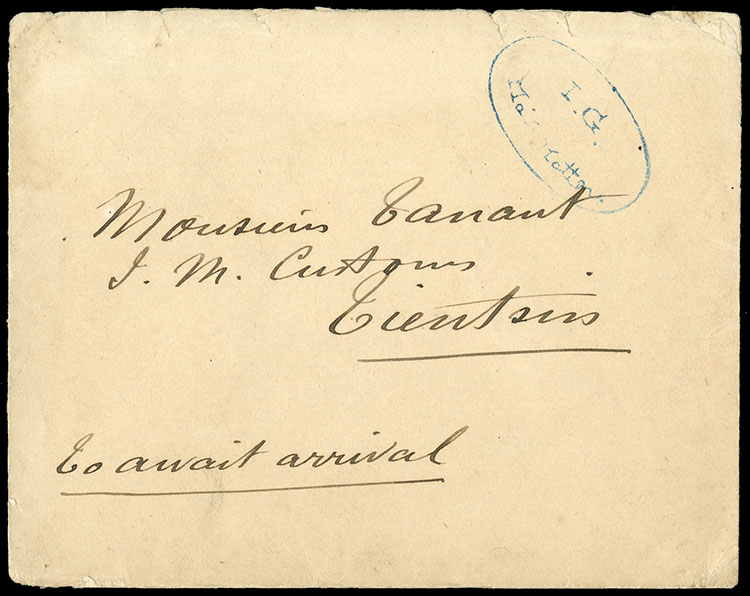 I.G.
Mail Matter.
Monsieur Tanant
I. M. Customs
Tientsin
To await arrival